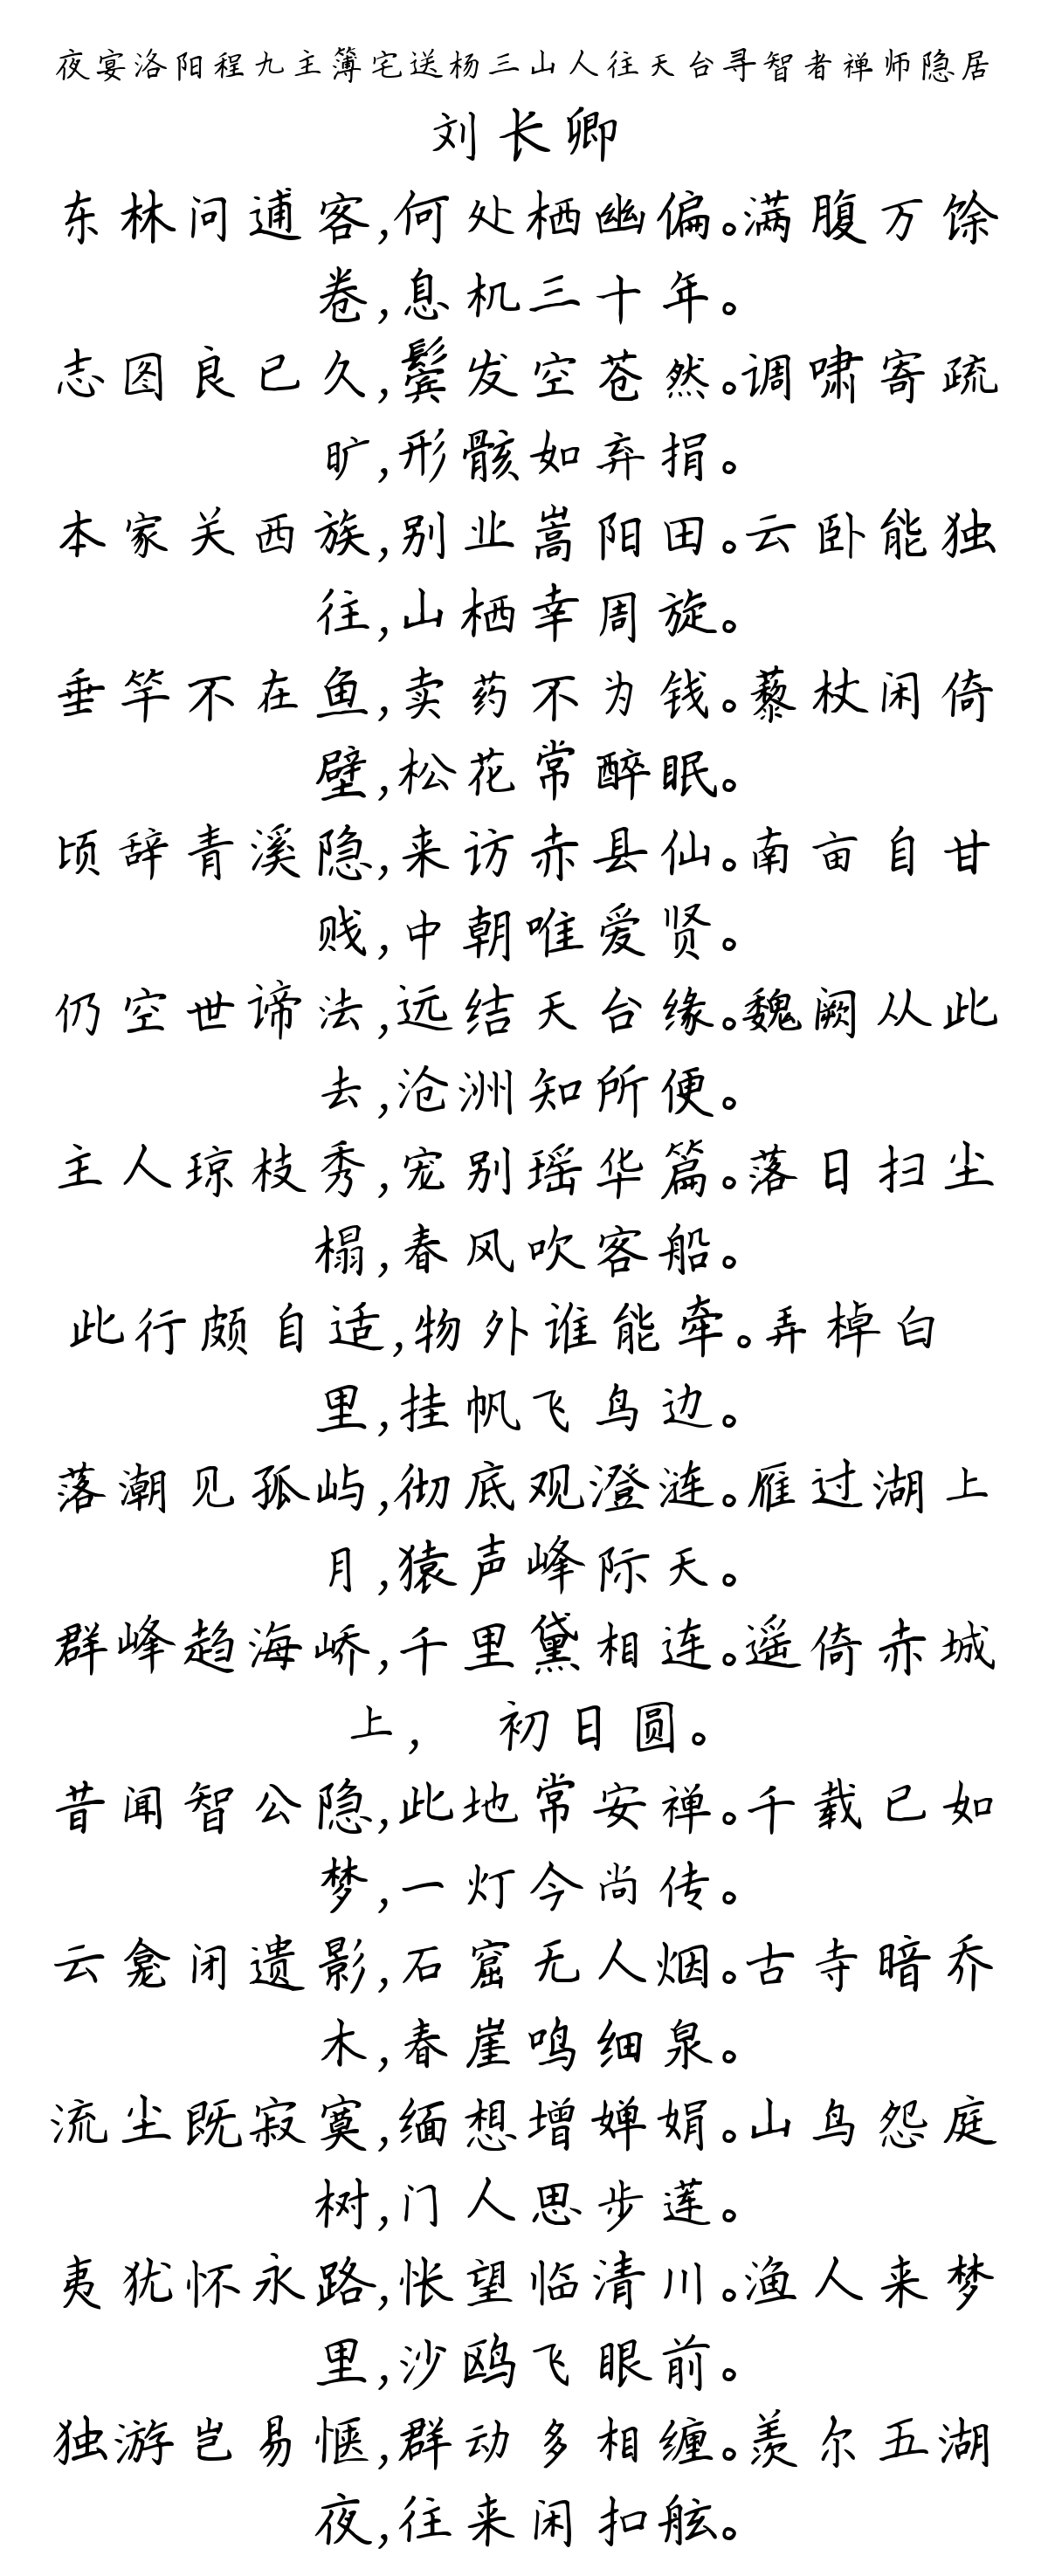 夜宴洛阳程九主簿宅送杨三山人往天台寻智者禅师隐居
刘长卿
东林问逋客,何处栖幽偏。满腹万馀
卷,息机三十年。
志图良已久,鬓发空苍然。调啸寄疏
旷,形骸如弃捐。
本家关西族,别业嵩阳田。云卧能独
往,山栖幸周旋。
垂竿不在鱼,卖药不为钱。藜杖闲倚
壁,松花常醉眠。
顷辞青溪隐,来访赤县仙。南亩自甘
贱,中朝唯爱贤。
仍空世谛法,远结天台缘。魏阙从此
去,沧洲知所便。
主人琼枝秀,宠别瑶华篇。落日扫尘
榻,春风吹客船。
此行颇自适,物外谁能牵。弄棹白
里,挂帆飞鸟边。
落潮见孤屿,彻底观澄涟。雁过湖上
月,猿声峰际天。
群峰趋海峤,千里黛相连。遥倚赤城
上, 初日圆。
昔闻智公隐,此地常安禅。千载已如
梦,一灯今尚传。
云龛闭遗影,石窟无人烟。古寺暗乔
木,春崖鸣细泉。
流尘既寂寞,缅想增婵娟。山鸟怨庭
树,门人思步莲。
夷犹怀永路,怅望临清川。渔人来梦
里,沙鸥飞眼前。
独游岂易惬,群动多相缠。羡尔五湖
夜,往来闲扣舷。